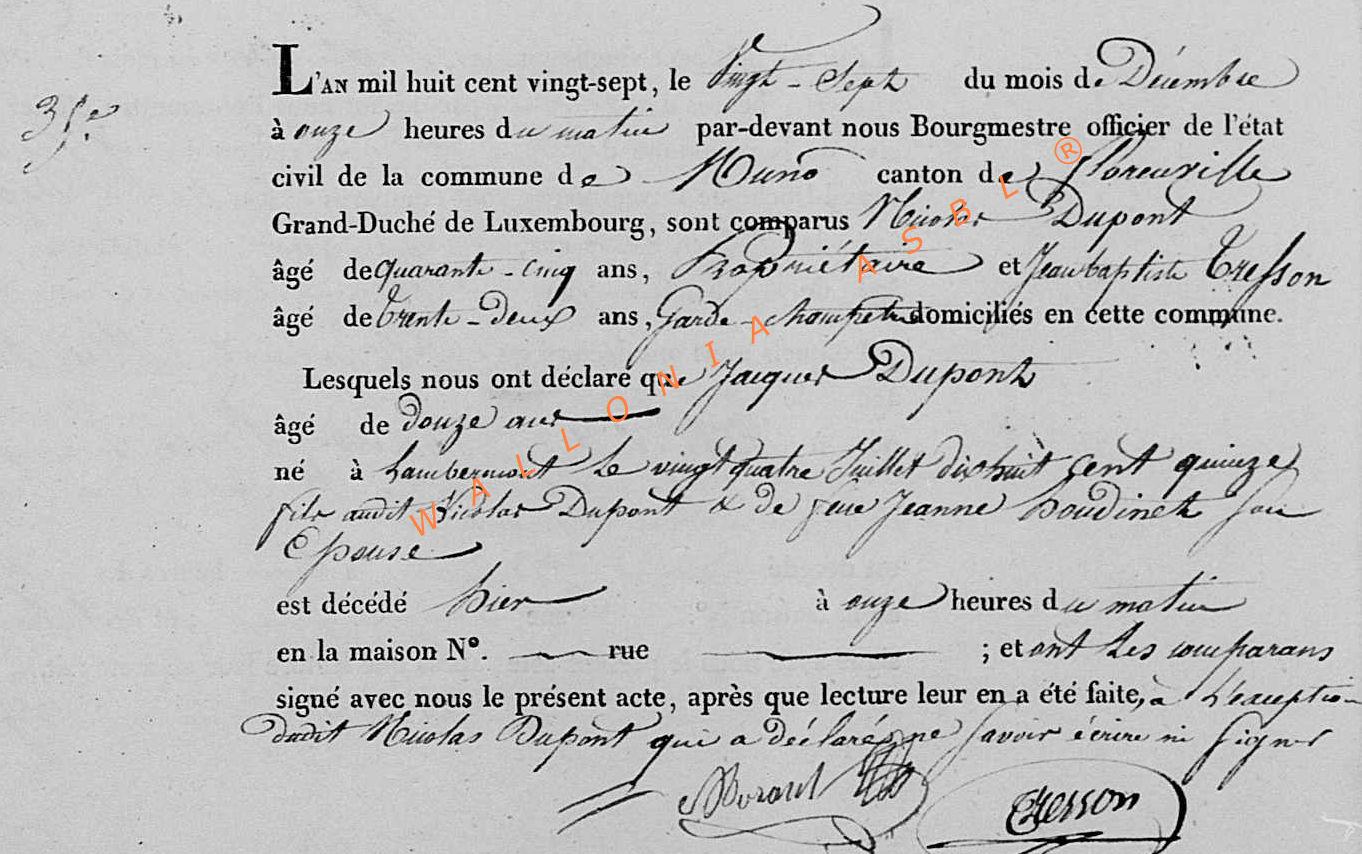 35e
L'AN mil huit cent vingt-sept, le Vingt-Sept du mois de Décembre
à onze heures du matin par-devant nous Bourgmestre officier de l'état
civil de la commune de Muno canton de Florenville
Grand-Duché de Luxembourg, sont comparus Nicolas Dupont
âgé de quarante-cinq ans, Propriétaire et Jeanbaptiste Tresson
âgé de trente-deux ans, Garde-champetre domiciliés en cette commune.
Lesquels nous ont déclaré que Jacques Dupont
âgé de douze ans
né à Lambermont le vingt quatre Juillet dix huit cent quinze
fils audit Nicolas Dupont & de feue Jeanne son
Epouse
est décédé hier à onze heures du matin
en la maison N°. rue ; et ont les comparans
signé avec nous le présent acte, après que lecture leur en a été faite, à L'exception
dudit Nicolas Dupont qui a déclaré ne savoir écrire ni signer
Tresson
WALLONIA ASBL ®